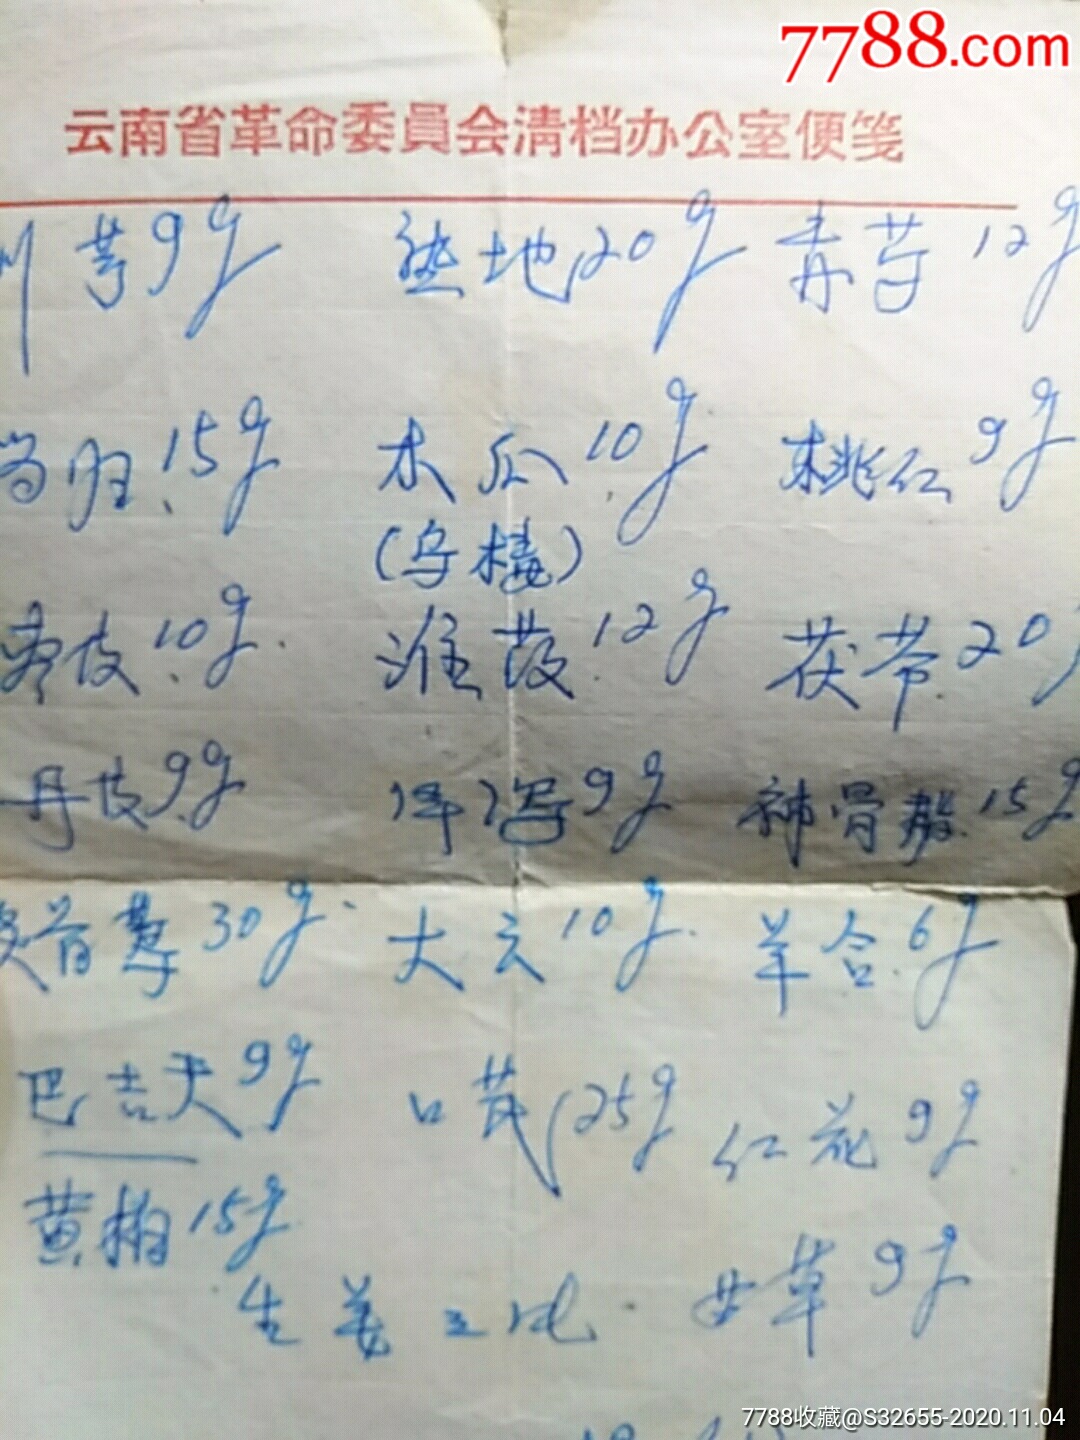 7788.com
云南省革命委員会清档办公室便笺
川芎9g 熟地20g 青芍12g
当归15g 木瓜10g 桃仁9g
(乌梅)
枣皮10g 淮药12g 茯苓20
丹皮9g 泽泻9g 补骨脂15g
30g 大云10g 羊合6g
巴吉天9g 口芪25g 红花9g
黄精15g
生姜 甘草9g
7788收藏@S32655-2020.11.04